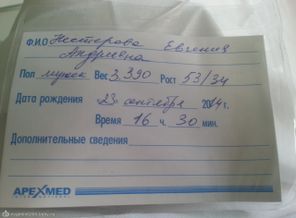 Ф.И.О Нестерова Евгения
Андреевна
Пол мужск Вес 3,390 Рост 53/34
Дата рождения 23 сентября 2014г.
Время 16 ч. 30 мин.
Дополнительные сведения
APEXMED